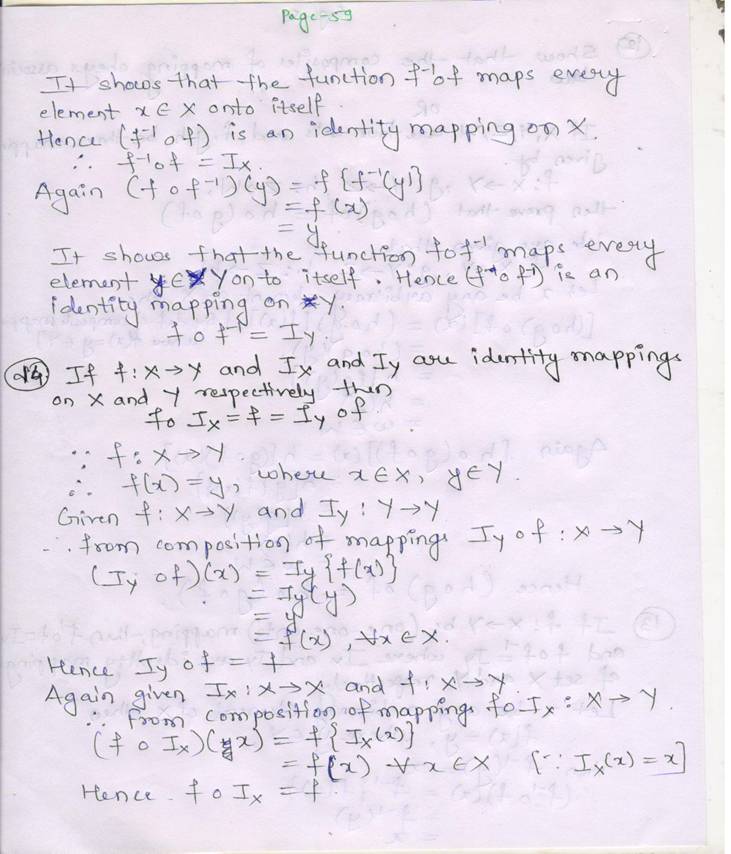 Page-59
It shows that the function f⁻¹of maps every
element x ∈ X onto itself.
Hence (f⁻¹ of) is an identity mapping on X.
∴ f⁻¹of = Iₓ.
Again (f o f⁻¹)(y) = f {f⁻¹(y)}
= f(x)
= y
It shows that the function fof⁻¹ maps every
element y ∈ Y on to itself. Hence (f o f⁻¹) is an
identity mapping on Y.
f o f⁻¹ = Iy.
14 If f: X → Y and Ix and Iy are identity mappings
on X and Y respectively then
fo Ix = f = Iy of
∵ f: X → Y.
∴ f(x) = y, where x ∈ X, y ∈ Y.
Given f: X → Y and Iy : Y → Y
∴ from composition of mappings Iy o f : X → Y
(Iy of)(x) = Iy {f(x)}
= Iy(y)
= y
= f(x), ∀x ∈ X.
Hence Iy o f = f
Again given Ix : X → X and f: X → Y
∴ from composition of mappings fo Ix : X → Y.
(f o Ix)(x) = f{Ix(x)}
= f(x) ∀ x ∈ X [∵ Ix(x) = x]
Hence f o Ix = f.